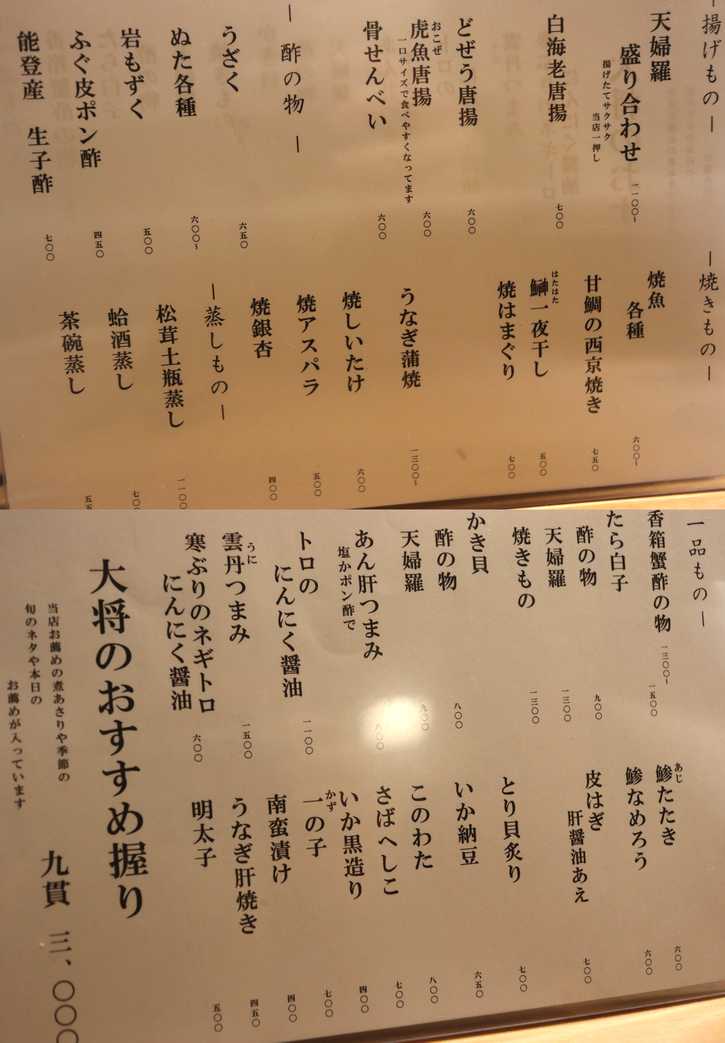 ―揚げもの―
天婦羅
盛り合わせ 一一〇〇~
揚げたてサクサク
当店一押し
白海老唐揚 七〇〇
どぜう唐揚 六〇〇
おこぜ
虎魚唐揚 六〇〇
一口サイズで食べやすくなってます
骨せんべい 六〇〇
―酢の物―
うざく 六五〇
ぬた各種 六〇〇~
岩もずく 五〇〇
ふぐ皮ポン酢 四五〇
能登産 生子酢 七〇〇
―焼きもの―
焼魚
各種 六〇〇~
甘鯛の西京焼き 七五〇
はたはた
鰰一夜干し 五〇〇
焼はまぐり 七〇〇
うなぎ蒲焼 一三〇〇~
焼しいたけ 六〇〇
焼アスパラ 五〇〇
焼銀杏 四〇〇
―蒸しもの―
松茸土瓶蒸し 一一〇〇
蛤酒蒸し 七〇〇
茶碗蒸し
一品もの―
香箱蟹酢の物 一三〇〇~一五〇〇
たら白子
酢の物 九〇〇
天婦羅 一三〇〇
焼きもの 一三〇〇
かき貝
酢の物 八〇〇
天婦羅 九〇〇
あん肝つまみ
塩かポン酢で
トロの
にんにく醤油 一一〇〇
うに
雲丹つまみ 一五〇〇
寒ぶりのネギトロ
にんにく醤油 六〇〇
あじ
鯵たたき 六〇〇
鯵なめろう 六〇〇
皮はぎ
肝醤油あえ 七〇〇
とり貝炙り 七〇〇
いか納豆 六五〇
このわた 八〇〇
さばへしこ 七〇〇
いか黒造り 四〇〇
かず
一の子 七〇〇
南蛮漬け 四〇〇
うなぎ肝焼き 四五〇
明太子 五〇〇
大将のおすすめ握り
当店お薦めの煮あさりや季節の
旬のネタや本日の
お薦めが入っています
九貫 三、〇〇〇